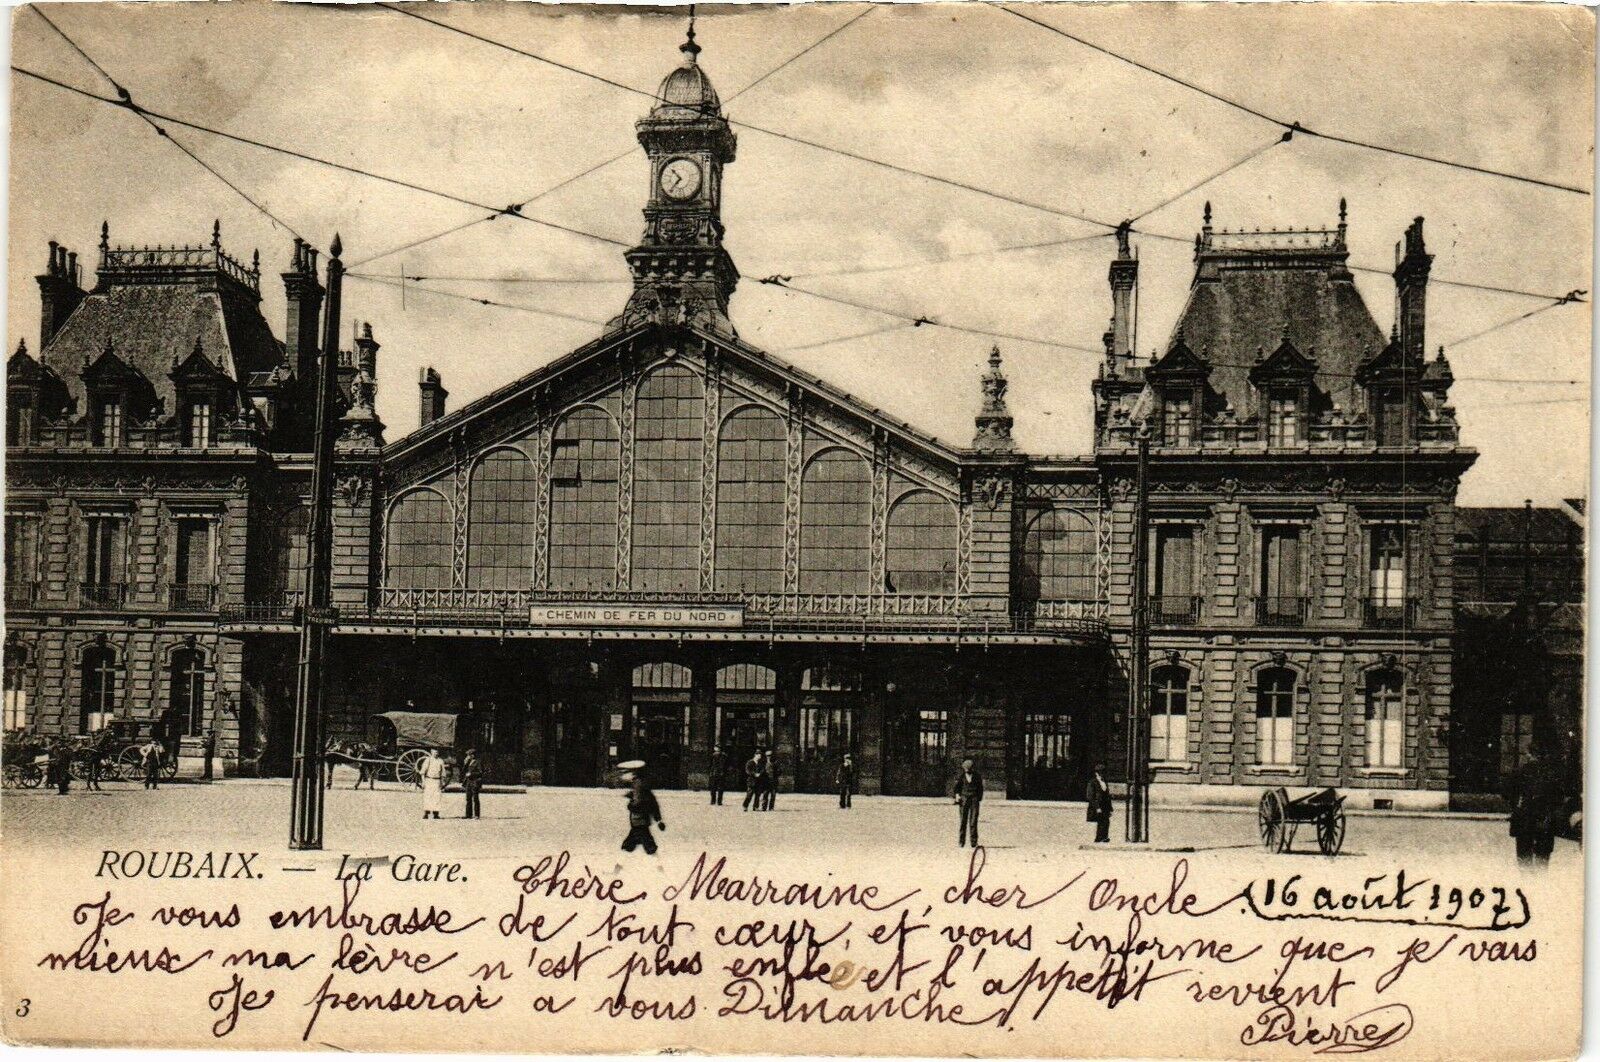 CHEMIN DE FER DU NORD
ROUBAIX. — La Gare.
Chère Marraine, cher Oncle (16 août 1907)
Je vous embrasse de tout cœur, et vous informe que je vais
mieux ma lèvre n'est plus enflée et l'appétit revient
Je penserai a vous Dimanche.
Pierre
3